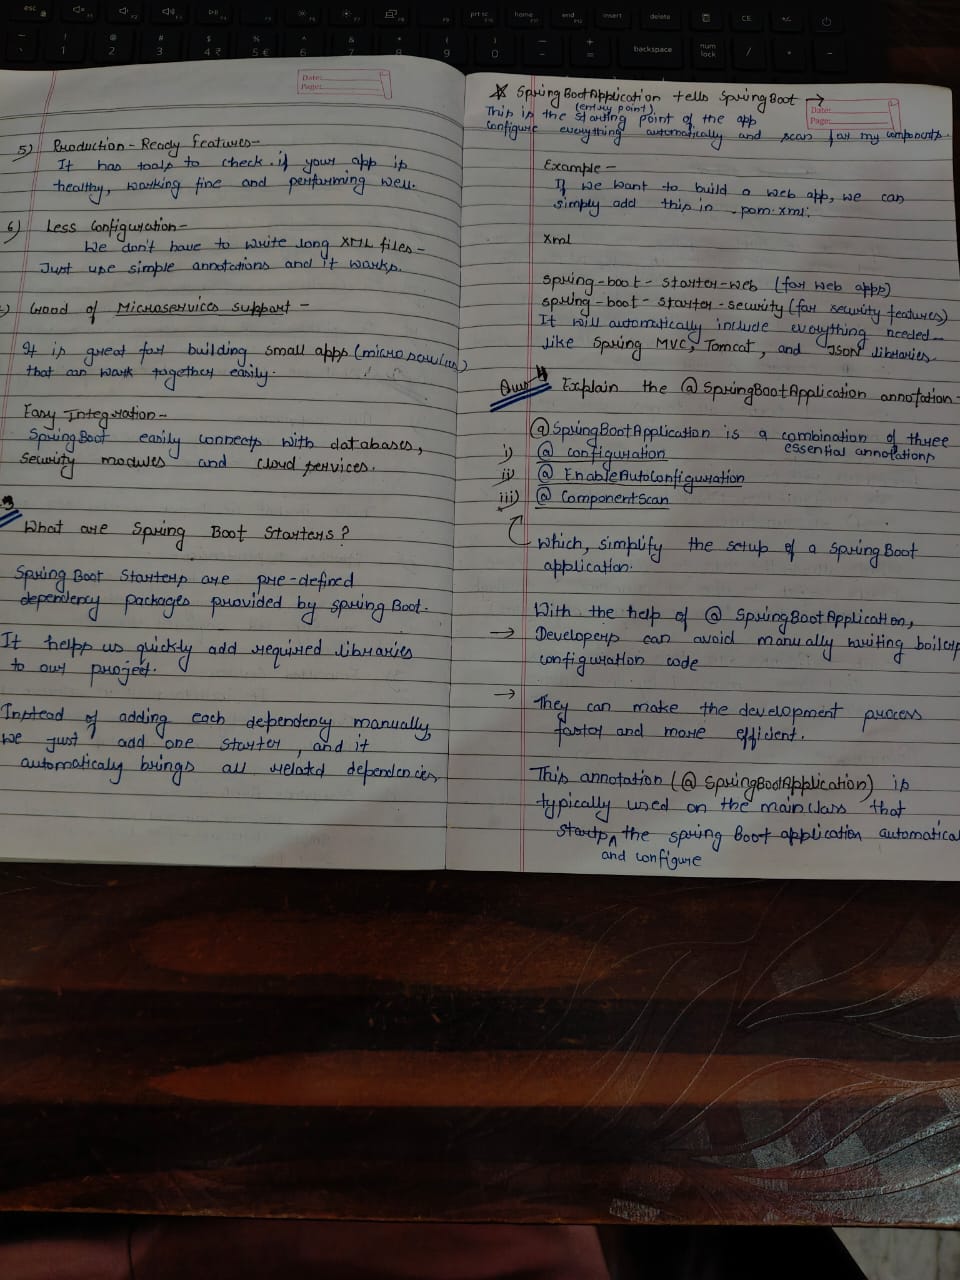 Date:
Page:
5) Production-Ready Features-
It has tools to check if your app is
healthy, working fine and performing well.
6) Less Configuration-
We don't have to write long XML files-
Just use simple annotations and it works.
Good of Microservices support -
It is great for building small apps (microservices)
that can work together easily.
Easy Integration-
SpringBoot easily connects with databases,
Security modules and cloud services.
3
What are Spring Boot Starters?
Spring Boot Starters are pre-defined
dependency packages provided by spring Boot.
It helps us quickly add required libraries
to our project.
Instead of adding each dependency manually,
we just add one starter, and it
automaticaly brings all related dependencies,
SpringBootApplication tells SpringBoot →
Date:
Page:
(entry point)
This is the starting point of the app
Configure everything automatically and scan for my components.
Example -
If we want to build a web app, we can
simply add this in .pom.xml:
Xml
spring-boot-starter-web (for web apps)
spring-boot-starter-security (for security features)
It will automatically include everything needed-
like Spring MVC, Tomcat, and JSON libraries.
Ques 4 Explain the @SpringBootApplication annotation-
@SpringBootApplication is a combination of three
essential annotations
i) @ configuration
ii) @ EnableAutoConfiguration
iii) @ ComponentScan
which, simplify the setup of a Spring Boot
application.
With the help of @ SpringBootApplication,
→ Developers can avoid manually writing boilerp
configuration code
→ They can make the development process
faster and more efficient.
This annotation (@ SpringBootApplication) is
typically used on the main class that
starts ^ the spring Boot application automatica
and configure